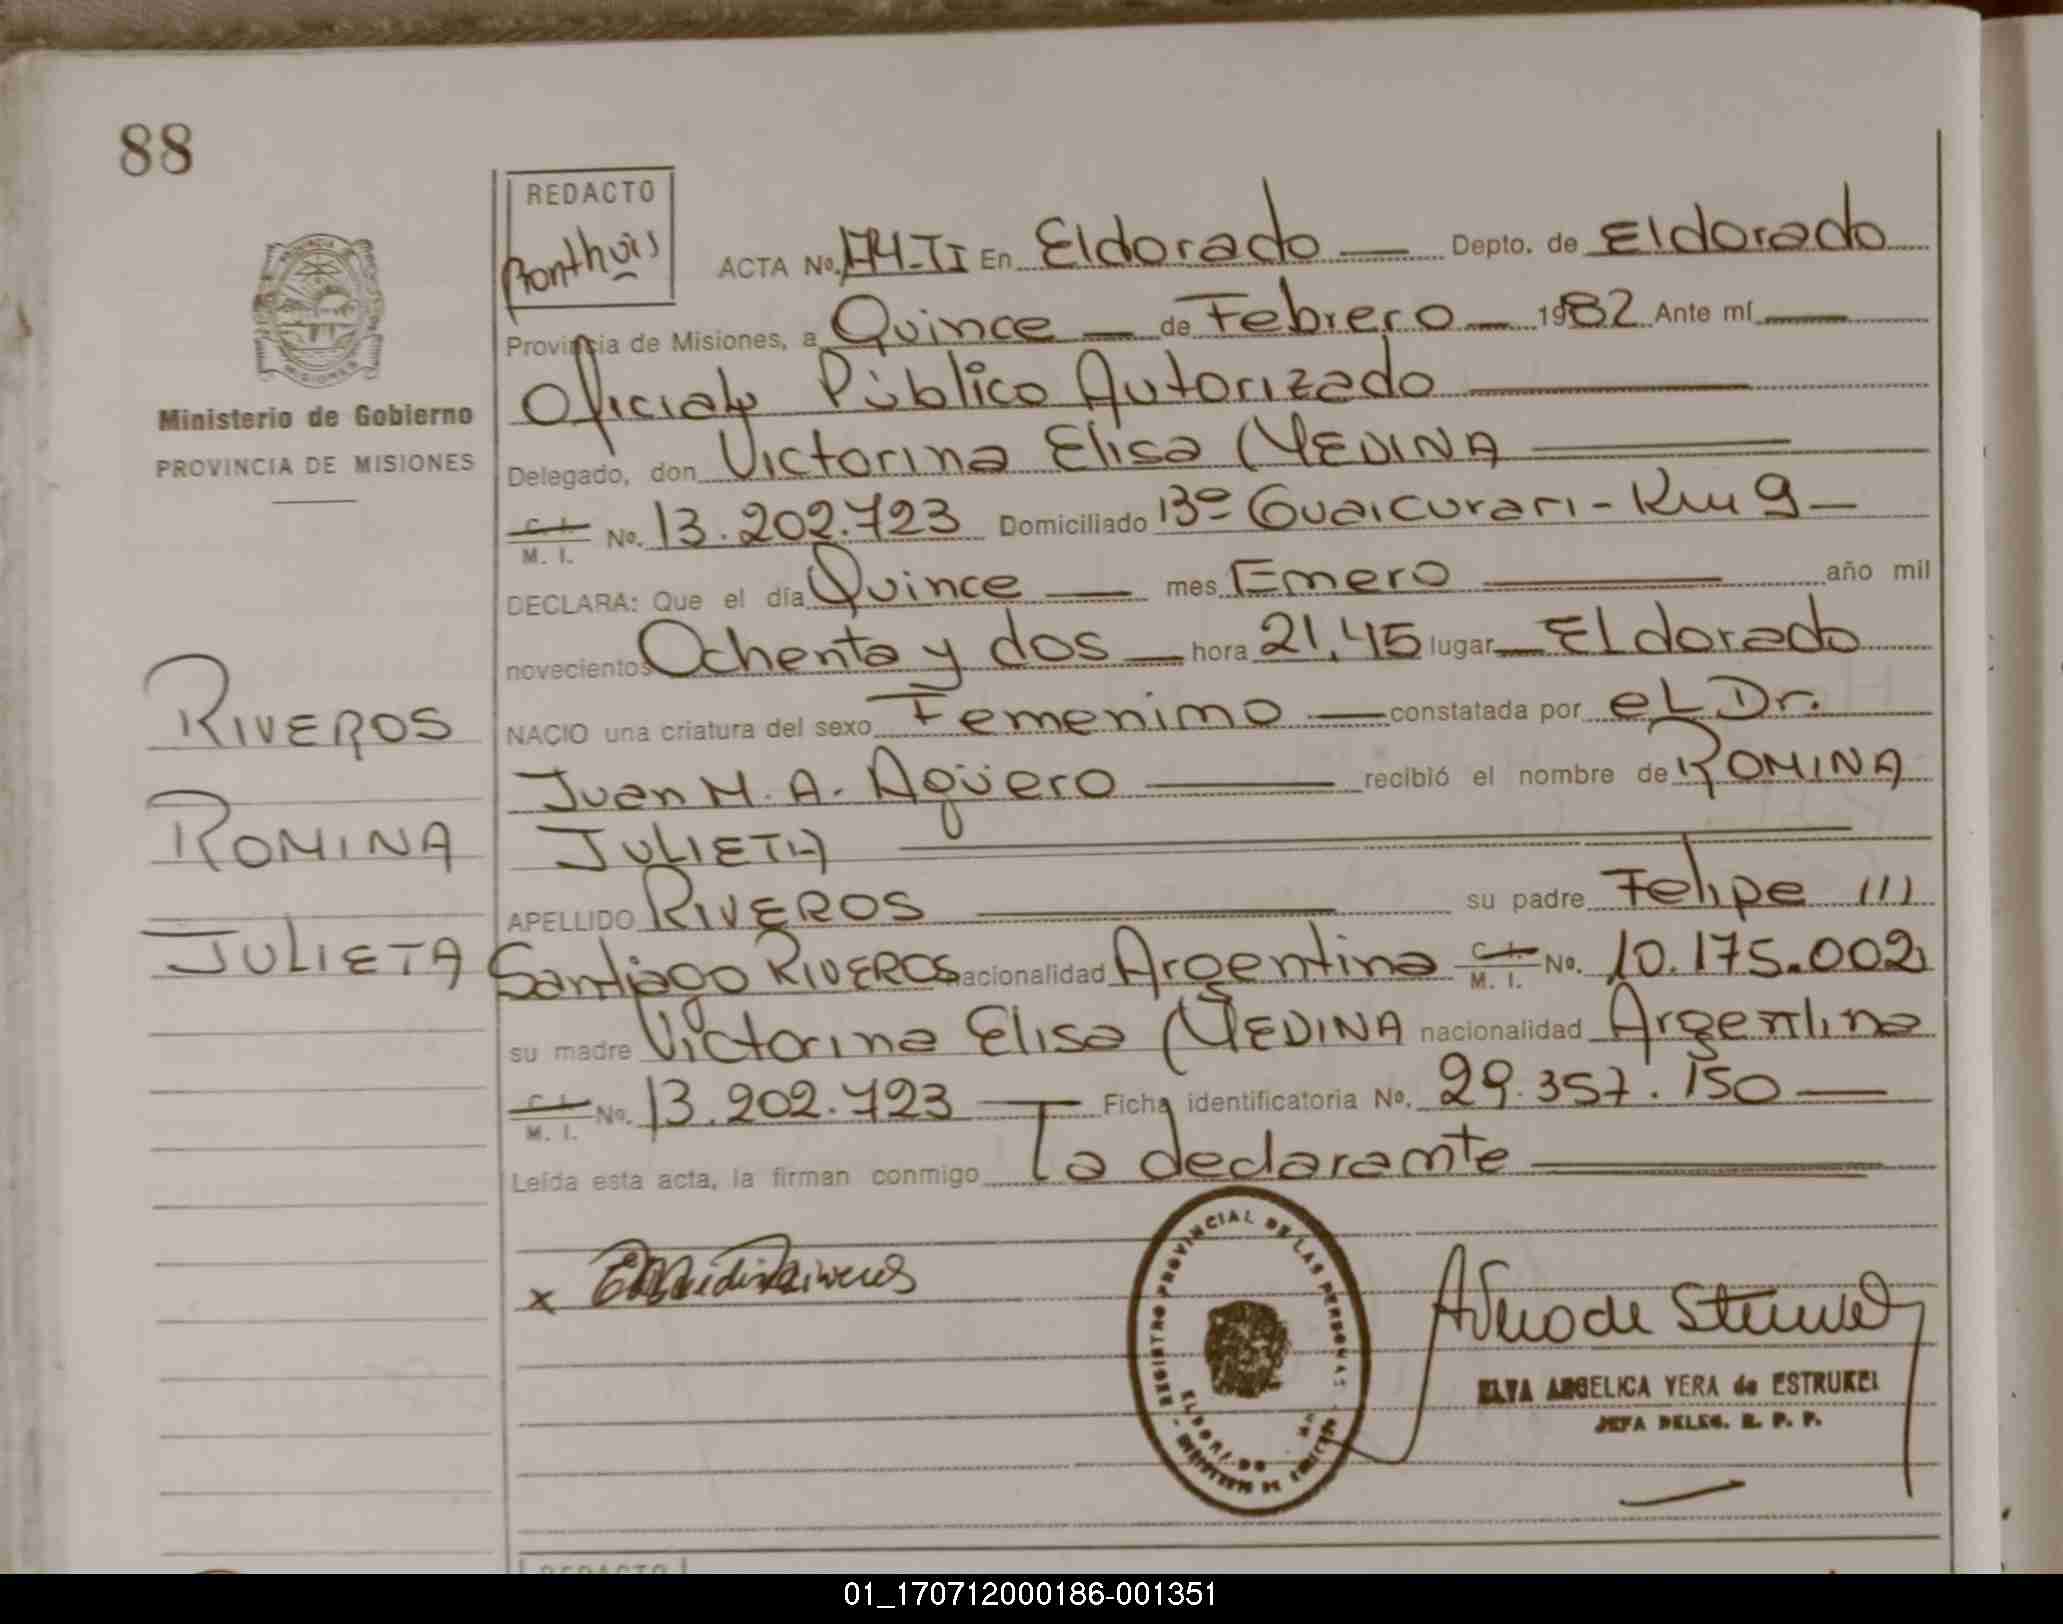 88
REDACTO
Ponthuis
ACTA No. 174-TI En Eldorado Depto. de Eldorado
Provincia de Misiones, a Quince de Febrero 1982 Ante mí
Oficial Público Autorizado
Ministerio de Gobierno
PROVINCIA DE MISIONES
Delegado, don Victorina Elisa MEDINA
C. I.
M. I. No. 13.202.723 Domiciliado Bº Guaicurari - Km 9
DECLARA: Que el día Quince mes Enero año mil
novecientos Ochenta y dos hora 21,45 lugar Eldorado
NACIO una criatura del sexo Femenino constatada por el Dr.
Juan M. A. Agüero recibió el nombre de ROMINA
JULIETA
RIVEROS
ROMINA
JULIETA
APELLIDO RIVEROS su padre Felipe
Santiago RIVEROS nacionalidad Argentina C. I. M. I. No. 10.175.002
su madre Victorina Elisa MEDINA nacionalidad Argentina
C. I.
M. I. No. 13.202.723 Ficha identificatoria No. 29.357.150
Leída esta acta, la firman conmigo la declarante
x
REGISTRO PROVINCIAL DE LAS PERSONAS
ELDORADO
ELVA ANGELICA VERA de ESTRUKEL
JEFA DELEG. R. P. P.
REDACTO
01_170712000186-001351